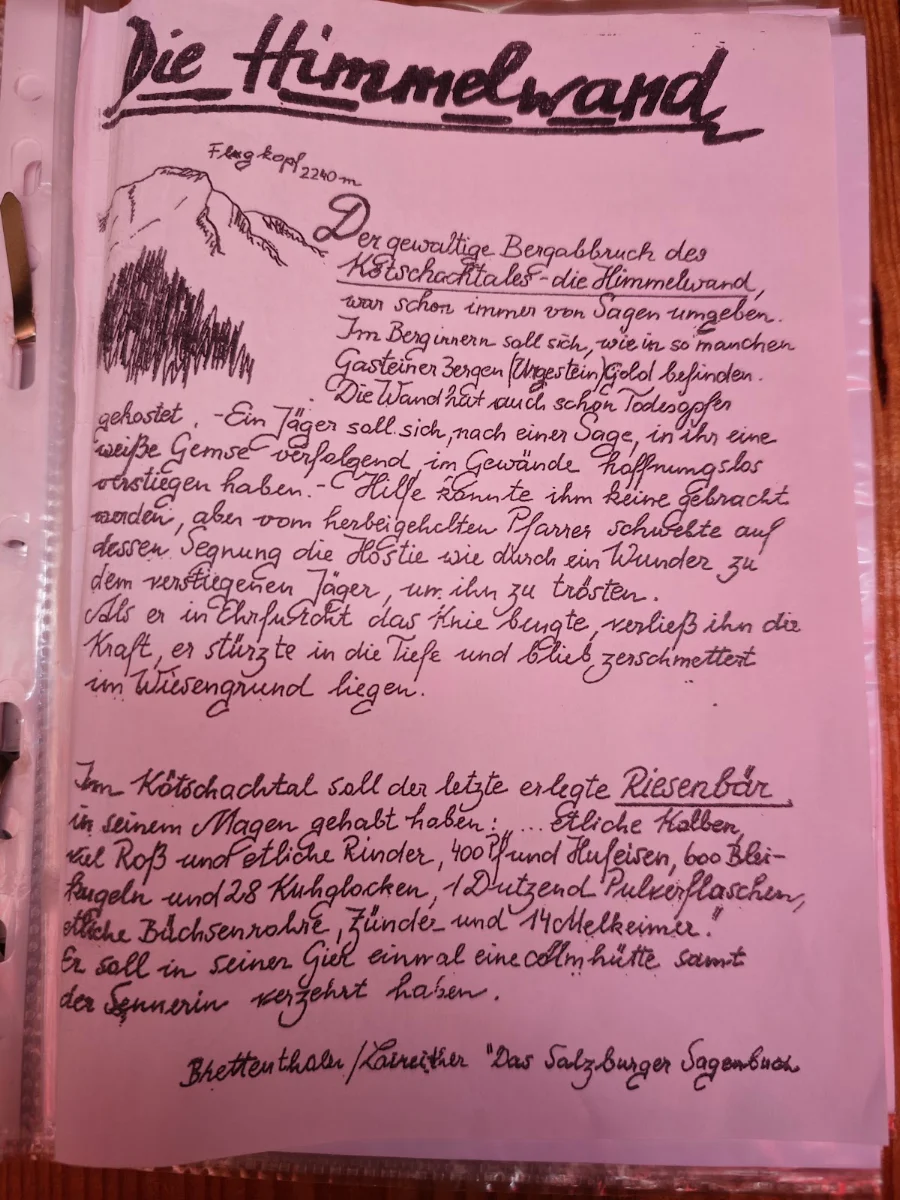 Die Himmelwand
Flugkopf 2240 m
Der gewaltige Bergabbruch des
Kötschachtales - die Himmelwand,
war schon immer von Sagen umgeben.
Im Berginnern soll sich, wie in so manchen
Gasteiner Bergen (Urgestein) Gold befinden.
Die Wand hat auch schon Todesopfer
gekostet. - Ein Jäger soll sich, nach einer Sage, in ihr eine
weiße Gemse verfolgend, im Gewände hoffnungslos
verstiegen haben. - Hilfe konnte ihm keine gebracht
werden, aber vom herbeigeholten Pfarrer schwebte auf
dessen Segnung die Hostie wie durch ein Wunder zu
dem verstiegenen Jäger, um ihn zu trösten.
Als er in Ehrfurcht das Knie beugte, verließ ihn die
Kraft, er stürzte in die Tiefe und blieb zerschmettert
im Wiesengrund liegen.
Im Kötschachtal soll der letzte erlegte Riesenbär,
in seinem Magen gehabt haben: „... Etliche Kalben,
viel Roß und etliche Rinder, 400 Pfund Hufeisen, 600 Blei-
kugeln und 28 Kuhglocken, 1 Dutzend Pulverflaschen,
etliche Büchsenrohre, Zünder und 14 Melkeimer."
Er soll in seiner Gier einmal eine Almhütte samt
der Sennerin verzehrt haben.
Brettenthaler/Laireither "Das Salzburger Sagenbuch